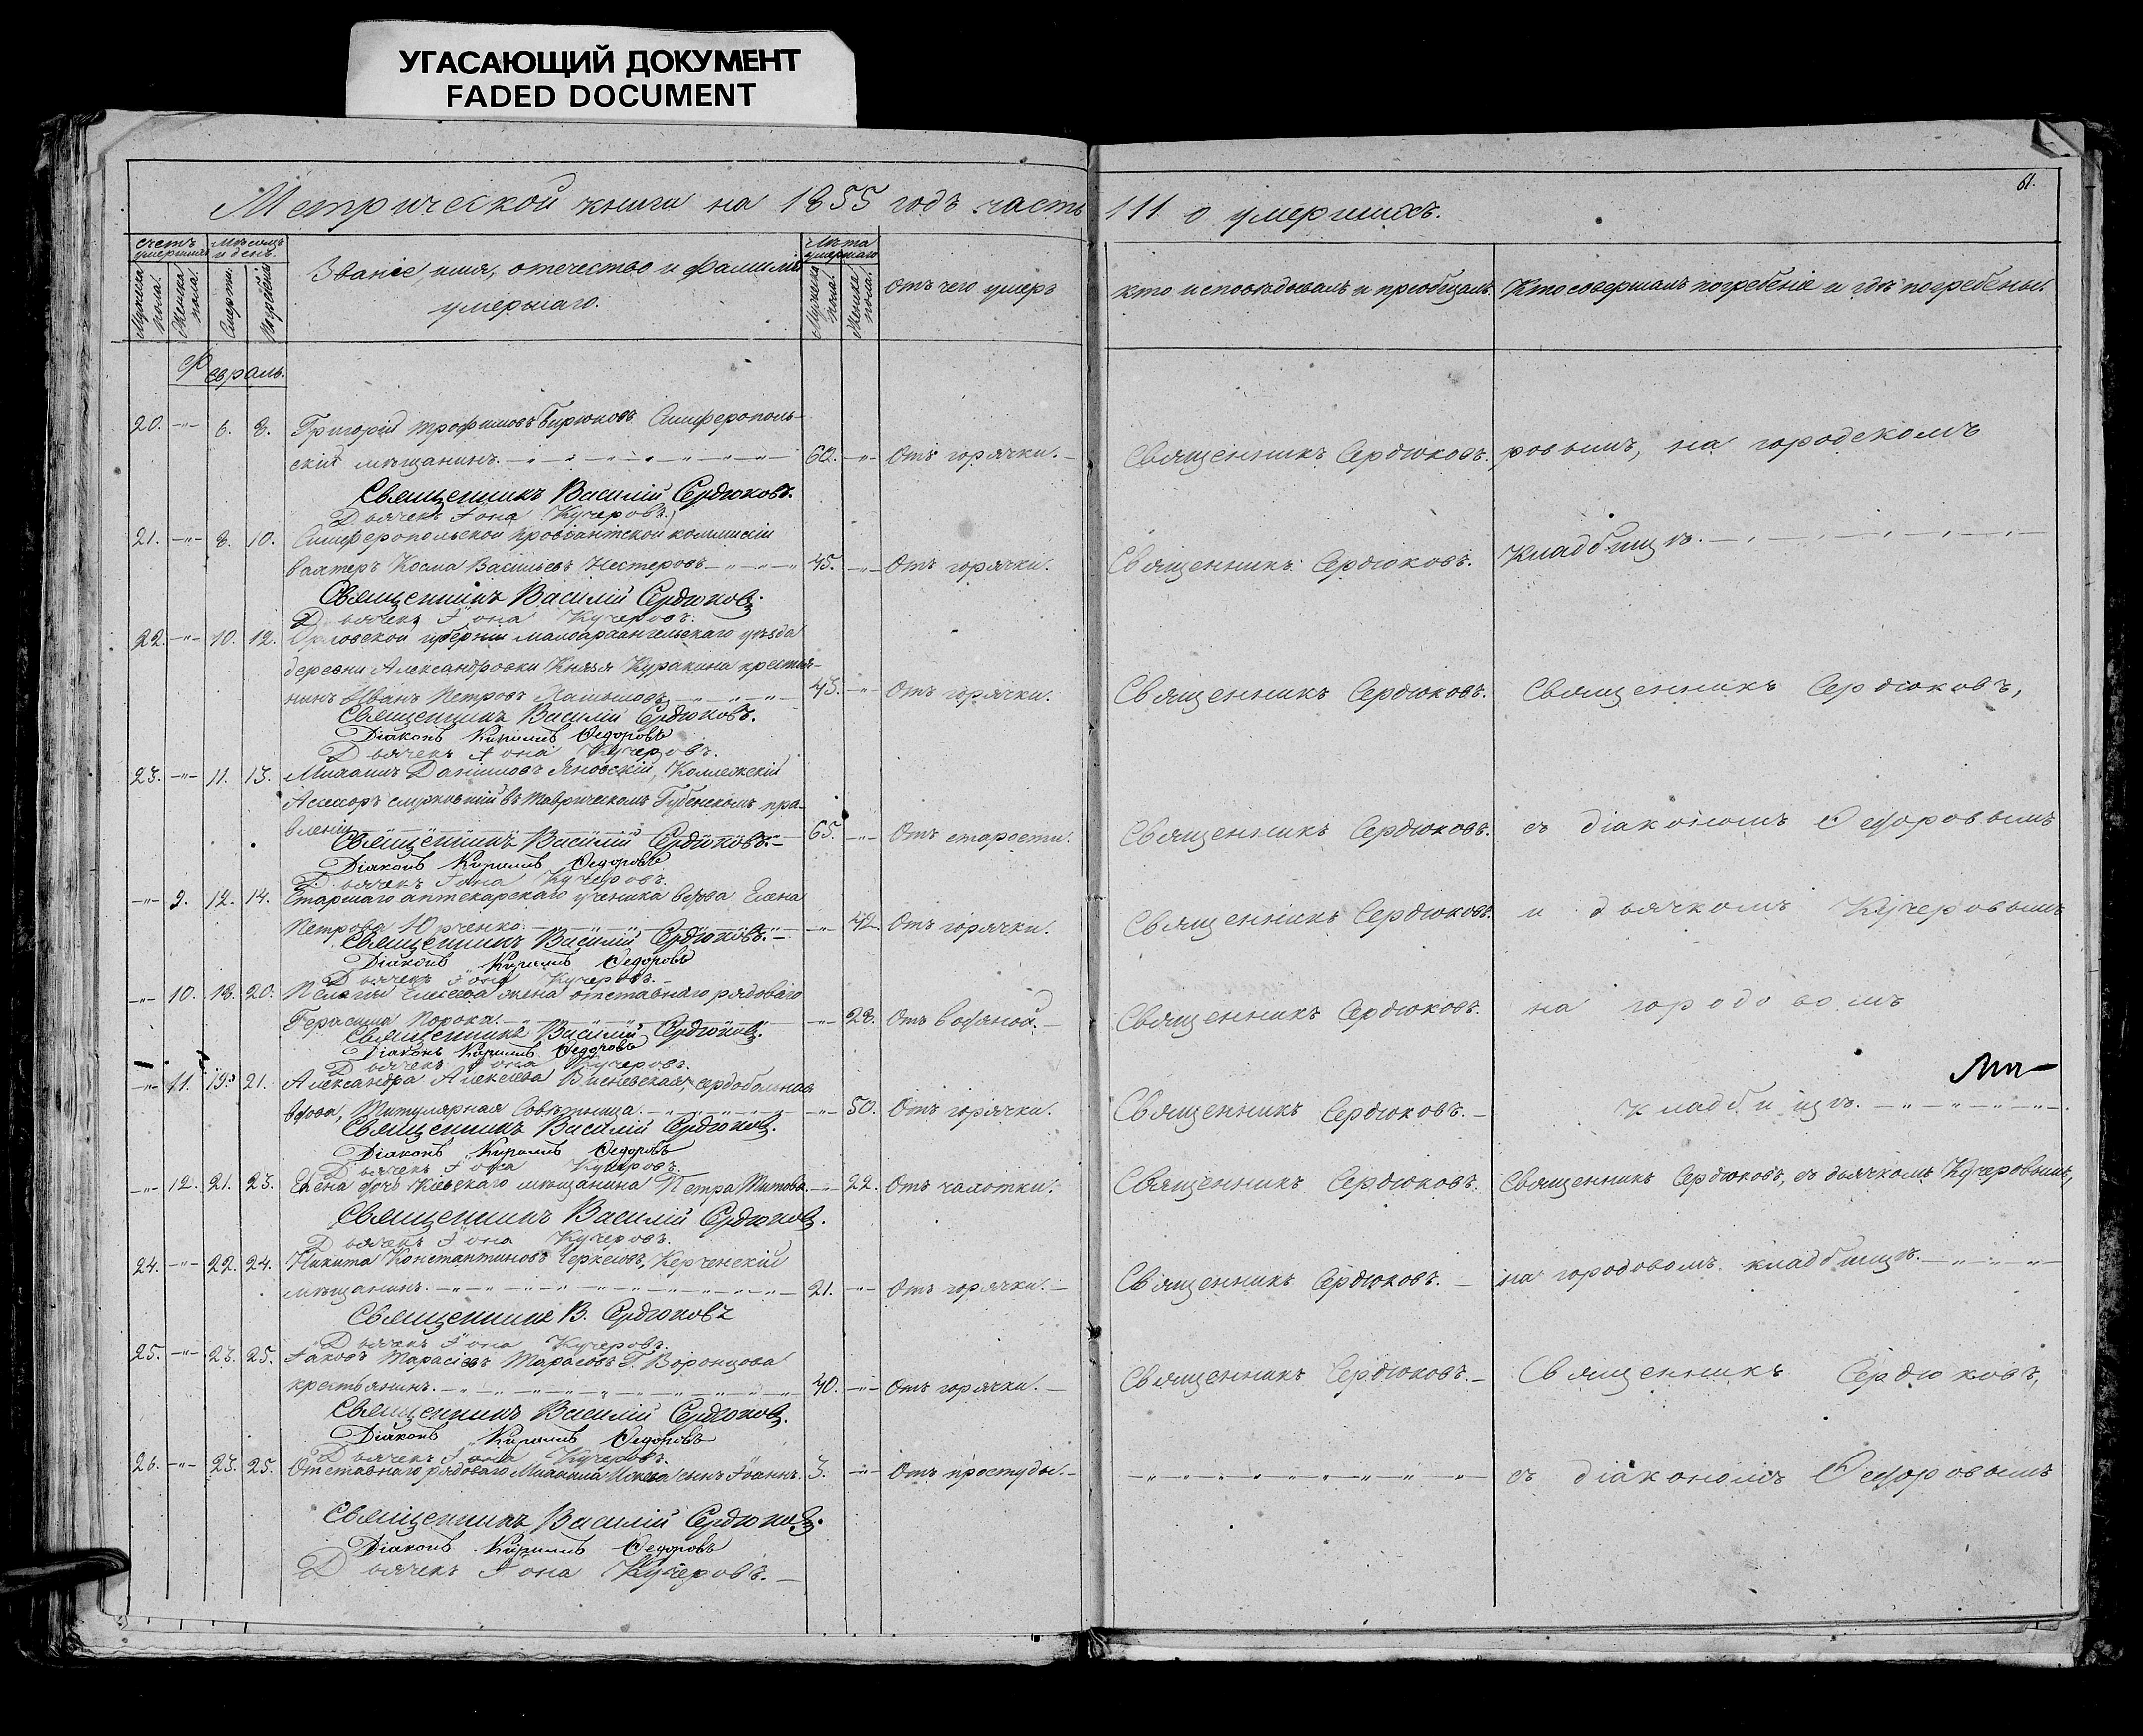 УГАСАЮЩИЙ ДОКУМЕНТ
FADED DOCUMENT
61.
Метрической книги на 1855 годъ часть 111 о умершихъ.
Счетъ умершихъ
Мужеска пола.
Женска пола.
Мѣсяцъ и день.
Смерти.
Погребенія
Званіе, имя, отечество и фамилія
умершаго.
Лѣта умершаго
Мужеска пола.
Женска пола.
Отъ чего умеръ
Кто исповѣдывалъ и пріобщалъ.
Кто совершалъ погребеніе и гдѣ погребены.
Февраль.
20. -"- 6. 8. Григорій Трофимовъ Бирюковъ Симферополь-
скій мѣщанинъ. 62. -"- Отъ горячки. Священникъ Сердюковъ. ровымъ, на городскомъ
Священникъ Василій Сердюковъ.
Дьячекъ Іона Кучеровъ.
21. -"- 8. 10. Симферопольской провіантской коммисіи
вахтеръ Косма Васильевъ Нестеровъ 45. -"- Отъ горячки. Священникъ Сердюковъ. кладбищѣ.
Священникъ Василій Сердюковъ.
Дьячекъ Іона Кучеровъ.
22. -"- 10. 12. Орловской губерніи Малоархангельскаго уѣзда
деревни Александровки Князя Куракина крестья-
нинъ Иванъ Петровъ 43. -"- Отъ горячки. Священникъ Сердюковъ. Священникъ Сердюковъ,
Священникъ Василій Сердюковъ.
Діаконъ Кириллъ Федоровъ
Дьячекъ Іона Кучеровъ.
23. -"- 11. 13. Михаилъ Даниловъ Яновскій, Коллежскій
Асессоръ служившій въ Таврическомъ Губенскомъ пра-
вленіи 65. -"- Отъ старости. Священникъ Сердюковъ. съ діакономъ Федоровымъ
Священникъ Василій Сердюковъ.
Діаконъ Кириллъ Федоровъ
Дьячекъ Іона Кучеровъ.
-"- 9. 12. 14. Старшаго аптекарскаго ученика вдова Елена
Петрова Юрченко. -"- 42. Отъ горячки. Священникъ Сердюковъ. и дьячкомъ Кучеровымъ
Священникъ Василій Сердюковъ.
Діаконъ Кириллъ Федоровъ
Дьячекъ Іона Кучеровъ.
-"- 10. 18. 20. Пелагія Елисеева жена отставнаго рядоваго
Герасима Порока. -"- 28. Отъ водяной. Священникъ Сердюковъ. на городовомъ
Священникъ Василій Сердюковъ.
Діаконъ Кириллъ Федоровъ
Дьячекъ Іона Кучеровъ.
-"- 11. 19. 21. Александра Алексеева Висневская, сердобольная
вдова, Титулярная Совѣтница. -"- 50. Отъ горячки. Священникъ Сердюковъ. кладбищѣ.
Священникъ Василій Сердюковъ.
Діаконъ Кириллъ Федоровъ
Дьячекъ Іона Кучеровъ.
-"- 12. 21. 23. Елена дочь Кіевскаго мѣщанина Петра Титова. -"- 22. Отъ чахотки. Священникъ Сердюковъ. Священникъ Сердюковъ, съ дьячкомъ Кучеровымъ,
Священникъ Василій Сердюковъ.
Дьячекъ Іона Кучеровъ.
24. -"- 22. 24. Никита Константиновъ Черкесовъ, Керченскій
мѣщанинъ. 21. -"- Отъ горячки. Священникъ Сердюковъ. на городовомъ кладбищѣ.
Священникъ В. Сердюковъ
Дьячекъ Іона Кучеровъ.
25. -"- 23. 25. Іаковъ Тарасіевъ Тарасовъ Г. Воронцова
крестьянинъ. 40. -"- Отъ горячки. Священникъ Сердюковъ. Священникъ Сердюковъ,
Священникъ Василій Сердюковъ.
Діаконъ Кириллъ Федоровъ
Дьячекъ Іона Кучеровъ.
26. -"- 23. 25. Отставнаго рядоваго Михаила сынъ Іоаннъ. 3. -"- Отъ простуды. съ діакономъ Федоровымъ
Священникъ Василій Сердюковъ.
Діаконъ Кириллъ Федоровъ
Дьячекъ Іона Кучеровъ.